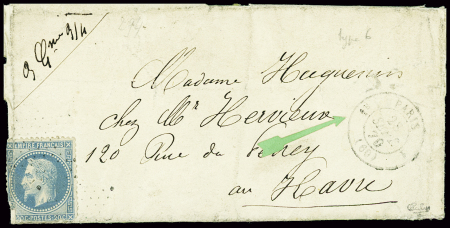 3 Gmes 3/4
type 6
Madame Huguenin
chez Mr Hervieux
120 Rue du Perrey
au Havre
EMPIRE FRANÇAIS
20 C POSTES 20 C
PARIS